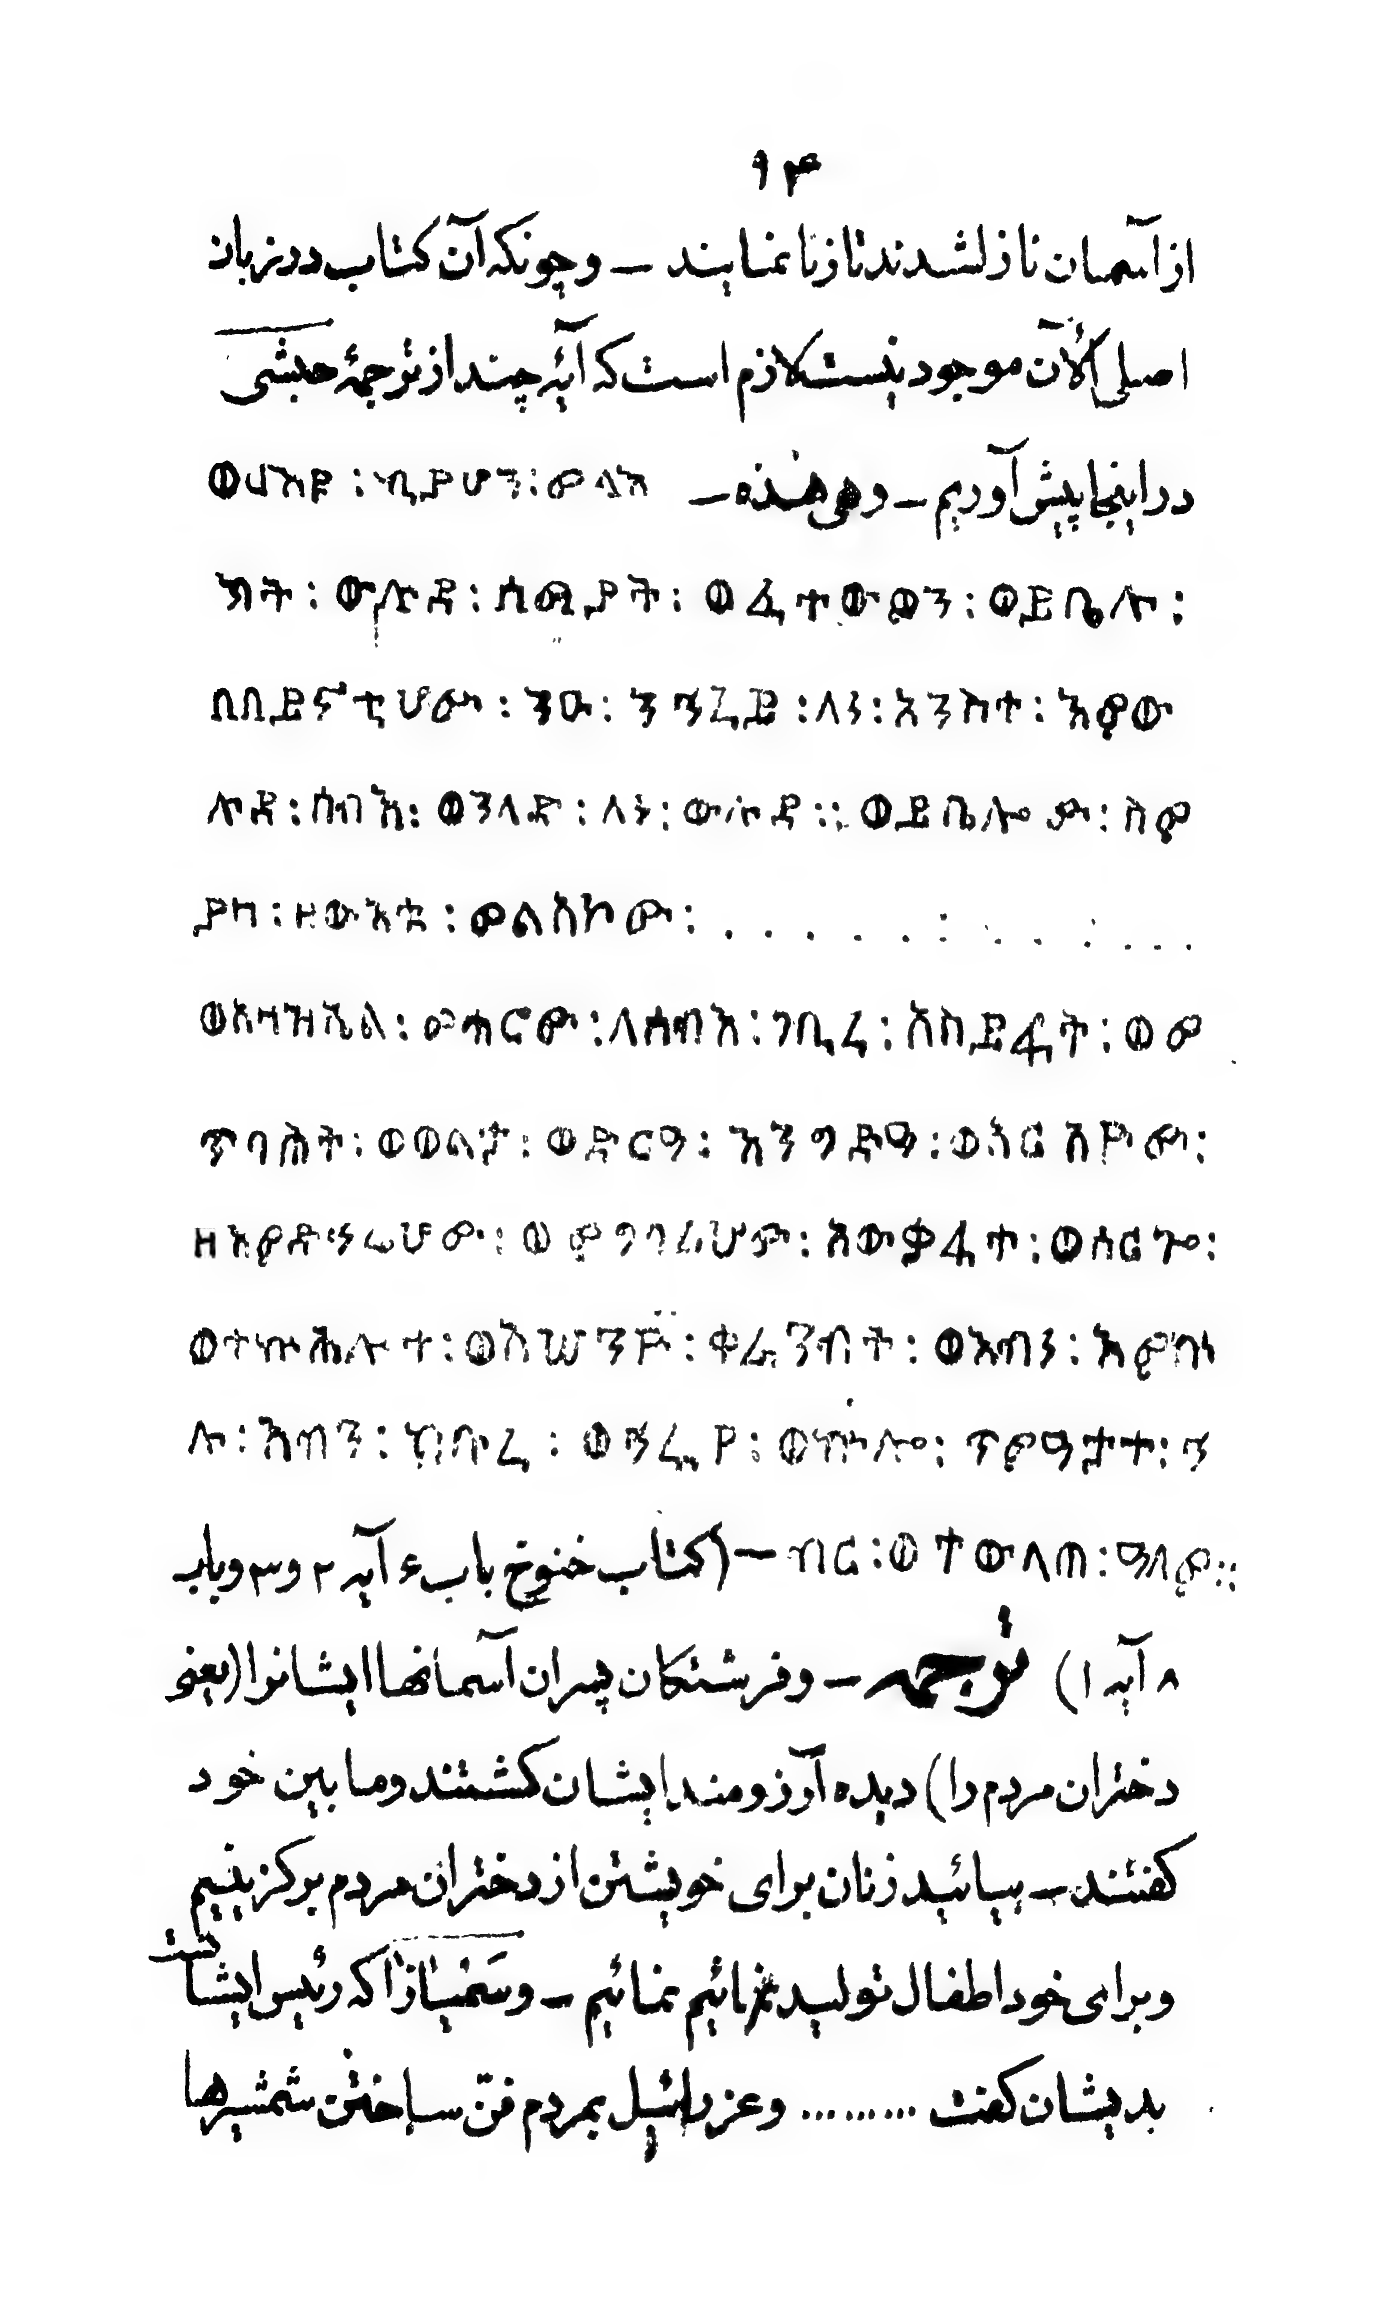 ۹۴
از آسمان نازل شدند تا زنا نمایند — و چونکه آن کتاب در زبان
اصلی الآن موجود نیست لازم است که آیهٔ چند از ترجمهٔ حبشی
در اینجا پیش آوریم — وهی هذه — ወርእዩ፡ ኪያሆን፡ መላእ
ክት፡ ውሉደ፡ ሰማያት፡ ወፈተውዎን፡ ወይቤሉ፡
በበይናቲሆሙ፡ ንዑ፡ ንኅረይ፡ ለነ፡ አንስተ፡ እምው
ሉደ፡ ሰብእ፡ ወንላድ፡ ለነ፡ ውሉደ። ወይቤሎሙ፡ ስም
ያዛ፡ ዘውእቱ፡ መልአኮሙ፡ . . . . . . . . . . .
ወአዛዝኤል፡ መሐሮሙ፡ ለሰብእ፡ ገቢረ፡ አስይፍት፡ ወመ
ጥባሕት፡ ወወልታ፡ ወድርዓ፡ እንግድዓ፡ ወኣርአዮሙ፡
ዘእምድኅሬሆሙ፡ ወምግባሪሆሙ፡ አውቃፋተ፡ ወሰርጎ፡
ወተኵሕሎተ፡ ወአሠንዮ፡ ቀራንብት፡ ወእብነ፡ እምኵ
ሉ፡ እብን፡ ክቡረ፡ ወኅሩየ፡ ወኵሎ፡ ጥምዓታተ፡ ኅ
ብር፡ ወተውላጠ፡ ዓለም። — (کتاب خنوخ باب ۶ آیه ۲ و ۳ و باب
۸ آیه ۱) ترجمه — و فرشتگان پسران آسمانها ایشانرا (یعنی
دختران مردم را) دیده آرزومند ایشان کشتند و ما بین خود
کفتند — بیائید زنان برای خویشتن از دختران مردم برکزینیم
و برای خود اطفال تولید نمائیم — و سَمْیازا که رئیس ایشان است
بدیشان کفت ......... و عزرائیل بمردم فنّ ساختن شمشیرها